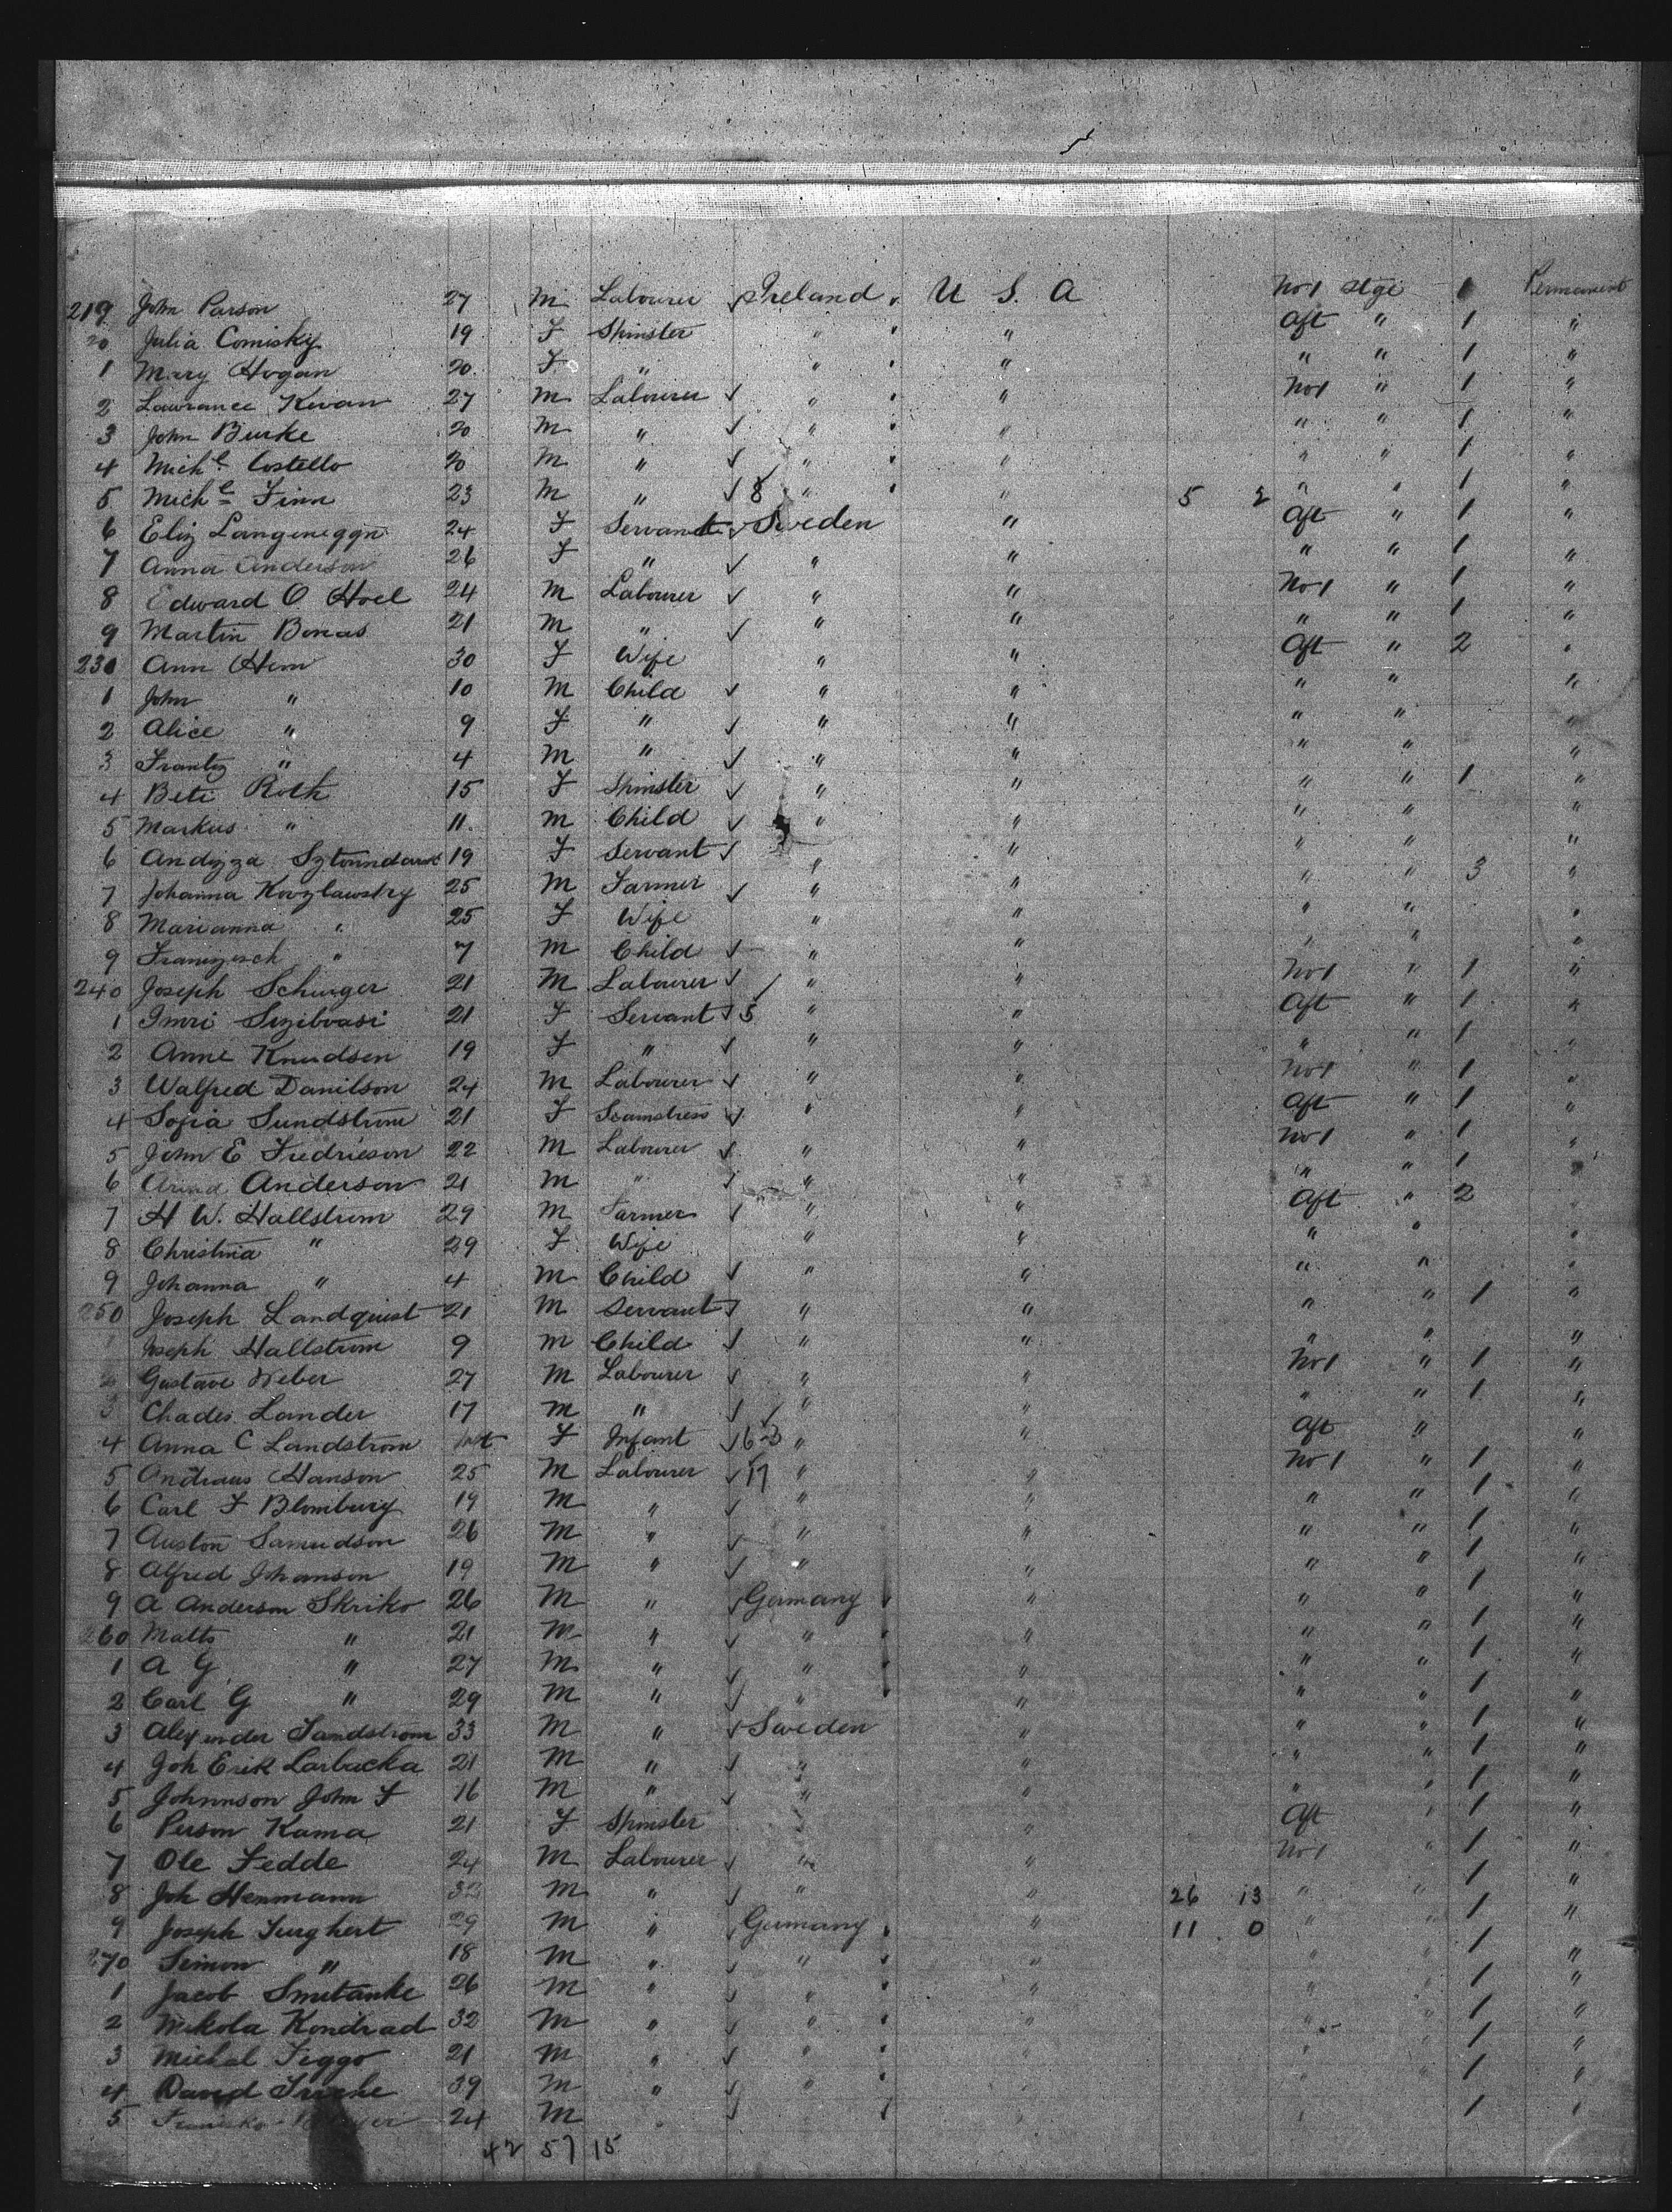 219 John Parson 27 M Labourer ✓ Ireland U S A No 1 Stge 1 Permanent
20 Julia Comisky 19 F Spinster " " Aft " 1 "
1 Mary Hogan 20 F " " " " " 1 "
2 Lawrance Kevan 27 M Labourer ✓ " " No 1 " 1 "
3 John Burke 20 M " ✓ " " " " 1 "
4 Michl Costello 20 M " ✓ " " " " 1 "
5 Michl Finn 23 M " ✓ 8 " " 5 2 " " 1 "
6 Eliz Langeneggn 24 F Servant ✓ Sweden " Aft " 1 "
7 Anna Anderson 26 F " ✓ " " " " 1 "
8 Edward O Hoel 24 M Labourer ✓ " " No 1 " 1 "
9 Martin Bonas 21 M " ✓ " " " " 1 "
230 Ann Hem 30 F Wife " " Aft " 2 "
1 John " 10 M Child ✓ " " " " "
2 Alice " 9 F " ✓ " " " " "
3 Frantz " 4 M " ✓ " " " " "
4 Beti Roth 15 F Spinster ✓ " " " " 1 "
5 Markus " 11 M Child ✓ " " " " "
6 Andizza 19 F Servant ✓ " " " " "
7 Johanna Kovzlawstry 25 M Farmer ✓ " " " " 3 "
8 Marianna " 25 F Wife " " " " "
9 Franzisch " 7 M Child ✓ " " " " "
240 Joseph Schwger 21 M Labourer ✓ " " No 1 " 1 "
1 Imri 21 F Servant ✓ 5 " " Aft " 1 "
2 Anne Knudsen 19 F " ✓ " " " " 1 "
3 Walfred Danilson 24 M Labourer ✓ " " No 1 " 1 "
4 Sofia Sundstrom 21 F Seamstress ✓ " " Aft " 1 "
5 John E Fredricson 22 M Labourer ✓ " " No 1 " 1 "
6 Anderson 21 M " ✓ " " " " 1 "
7 H W. Hallstrum 29 M Farmer ✓ " " Aft " 2 "
8 Christina " 29 F Wife " " " " "
9 Johanna " 4 M Child ✓ " " " " "
250 Joseph Landquist 21 M Servant ✓ " " " " 1 "
1 Joseph Hallstrom 9 M Child ✓ " " " " "
2 Gustave Weber 27 M Labourer ✓ " " No 1 " 1 "
3 Chades Lander 17 M " ✓ " " " " 1 "
4 Anna C Landstrom Inft F Infant ✓ 6-3 " " Aft " "
5 Andraus Hanson 25 M Labourer ✓ 17 " " No 1 " 1 "
6 Carl F Blomburg 19 M " ✓ " " " " 1 "
7 Auston Samudson 26 M " ✓ " " " " 1 "
8 Alfred Johanson 19 M " ✓ " " " " 1 "
9 A Anderson Skriko 26 M " ✓ Germany " " " 1 "
260 Matts " 21 M " ✓ " " " " 1 "
1 A G " 27 M " ✓ " " " " 1 "
2 Carl G " 29 M " ✓ " " " " 1 "
3 Alexander Sandstrom 33 M " ✓ Sweden " " " 1 "
4 Joh Erik Larbacka 21 M " ✓ " " " " 1 "
5 Johnnson John F 16 M " ✓ " " " " 1 "
6 Person Kama 21 F Spinster " " Aft " 1 "
7 Ole Fedde 24 M Labourer ✓ " " No 1 " 1 "
8 Joh Henmann 32 M " ✓ " " 26 13 " " 1 "
9 Joseph 29 M " ✓ Germany " 11 0 " " 1 "
270 Simon " 18 M " ✓ " " " " 1 "
1 Jacob Smetanke 26 M " ✓ " " " " 1 "
2 Mikola Kondrad 32 M " ✓ " " " " 1 "
3 Michal Figgo 21 M " ✓ " " " " 1 "
4 David 39 M " ✓ " " " " 1 "
5 24 M " ✓ " 1 "
42 57 15